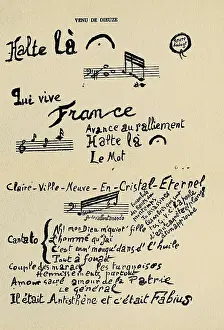 VENU DE DIEUZE
Halte là
Qui vive
France
Avance au ralliement
Halte là
Le Mot
Claire-Ville-Neuve-En-Cristal-Eternel
Cantato
Ah! mon Dieu m'quiot' fille
L'homme qu'jai
C'est un' mouqu' dans d' l'huile
Tout à fouait
Couple des marais les turquoises
Hennissements partout
Amour sacré amour de la Patrie
Le général
Il était Antisthène et c'était Fabius